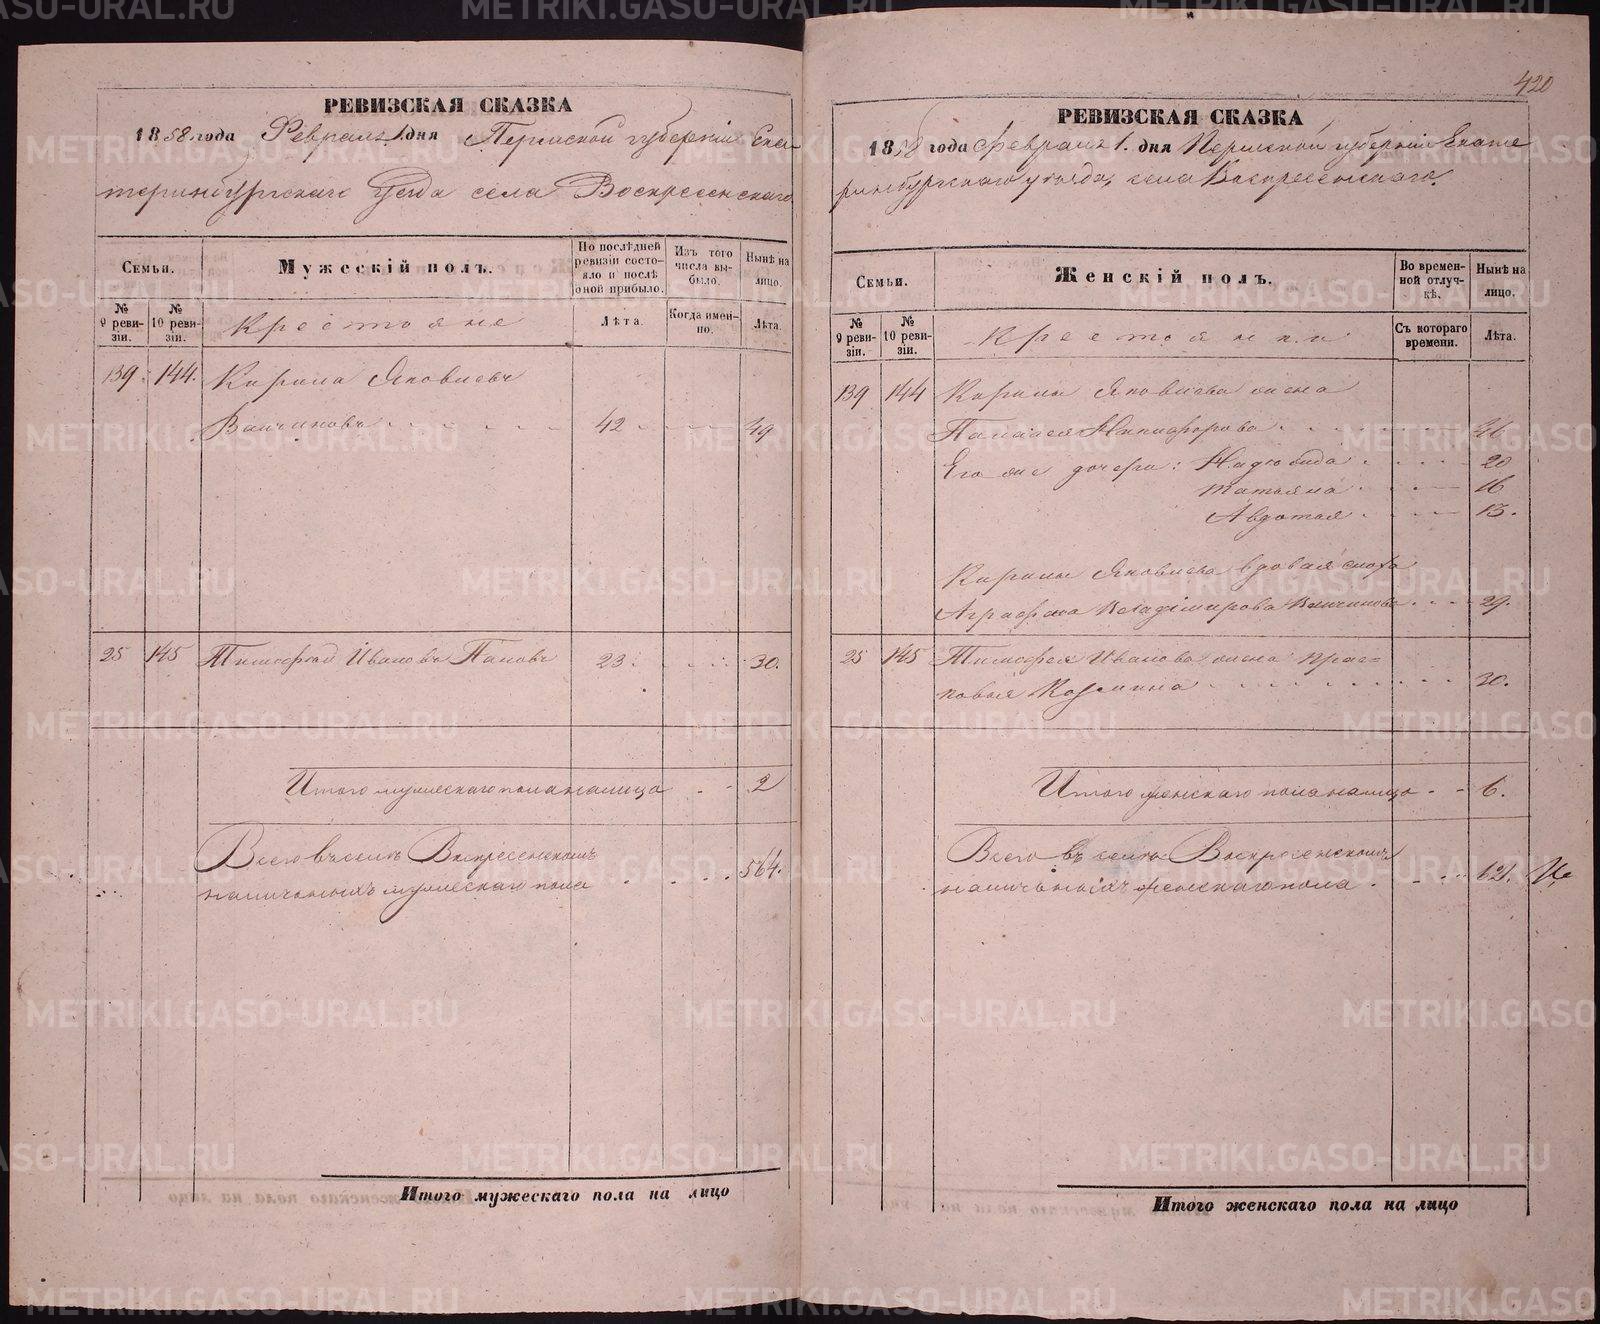 РЕВИЗСКАЯ СКАЗКА
1858 года Февраля 1 дня Пермской губернiи Ека-
теринбургскаго Уезда села Воскресенскаго
Семьи.
Мужескiй полъ.
По послѣдней ревизiи состо-яло и послѣ оной прибыло.
Изъ того числа вы-было.
Нынѣ на лицо.
№ 9 реви-зiи.
№ 10 реви-зiи.
Крестьяне
Лѣта.
Когда имен-но.
Лѣта.
139 144. Кирила Яковлевъ
42 49
25 145 Тимофей Ивановъ Пановъ 23 30.
Итого мужескаго пола налицо 2
Всего въ селѣ Воскресенскомъ
наличныхъ мужескаго пола 564.
Итого мужескаго пола на лицо
420
РЕВИЗСКАЯ СКАЗКА
1858 года Февраля 1. дня Пермской губернiи Екате
ринбургскаго уѣзда, села Воскресенскаго.
Семьи.
Женскiй полъ.
Во времен-ной отлуч-кѣ.
Нынѣ на лицо.
№ 9 реви-зiи.
№ 10 реви-зiи.
Крестьянки
Съ котораго времени.
Лѣта.
139 144 Кирилы Яковлева жена
Палагея Никифорова 46
Его же дочери: 20
Татьяна 16
Авдотья 13.
Кирилы Яковлева вдовая сноха
Аграфена Владимирова 29.
25 145 Тимофея Иванова жена Прас-
ковья Козмина 30.
Итого женскаго пола налицо 6.
Всего въ селѣ Воскресенскомъ
наличныхъ женскаго пола 621.
Итого женскаго пола на лицо
METRIKI.GASO-URAL.RU